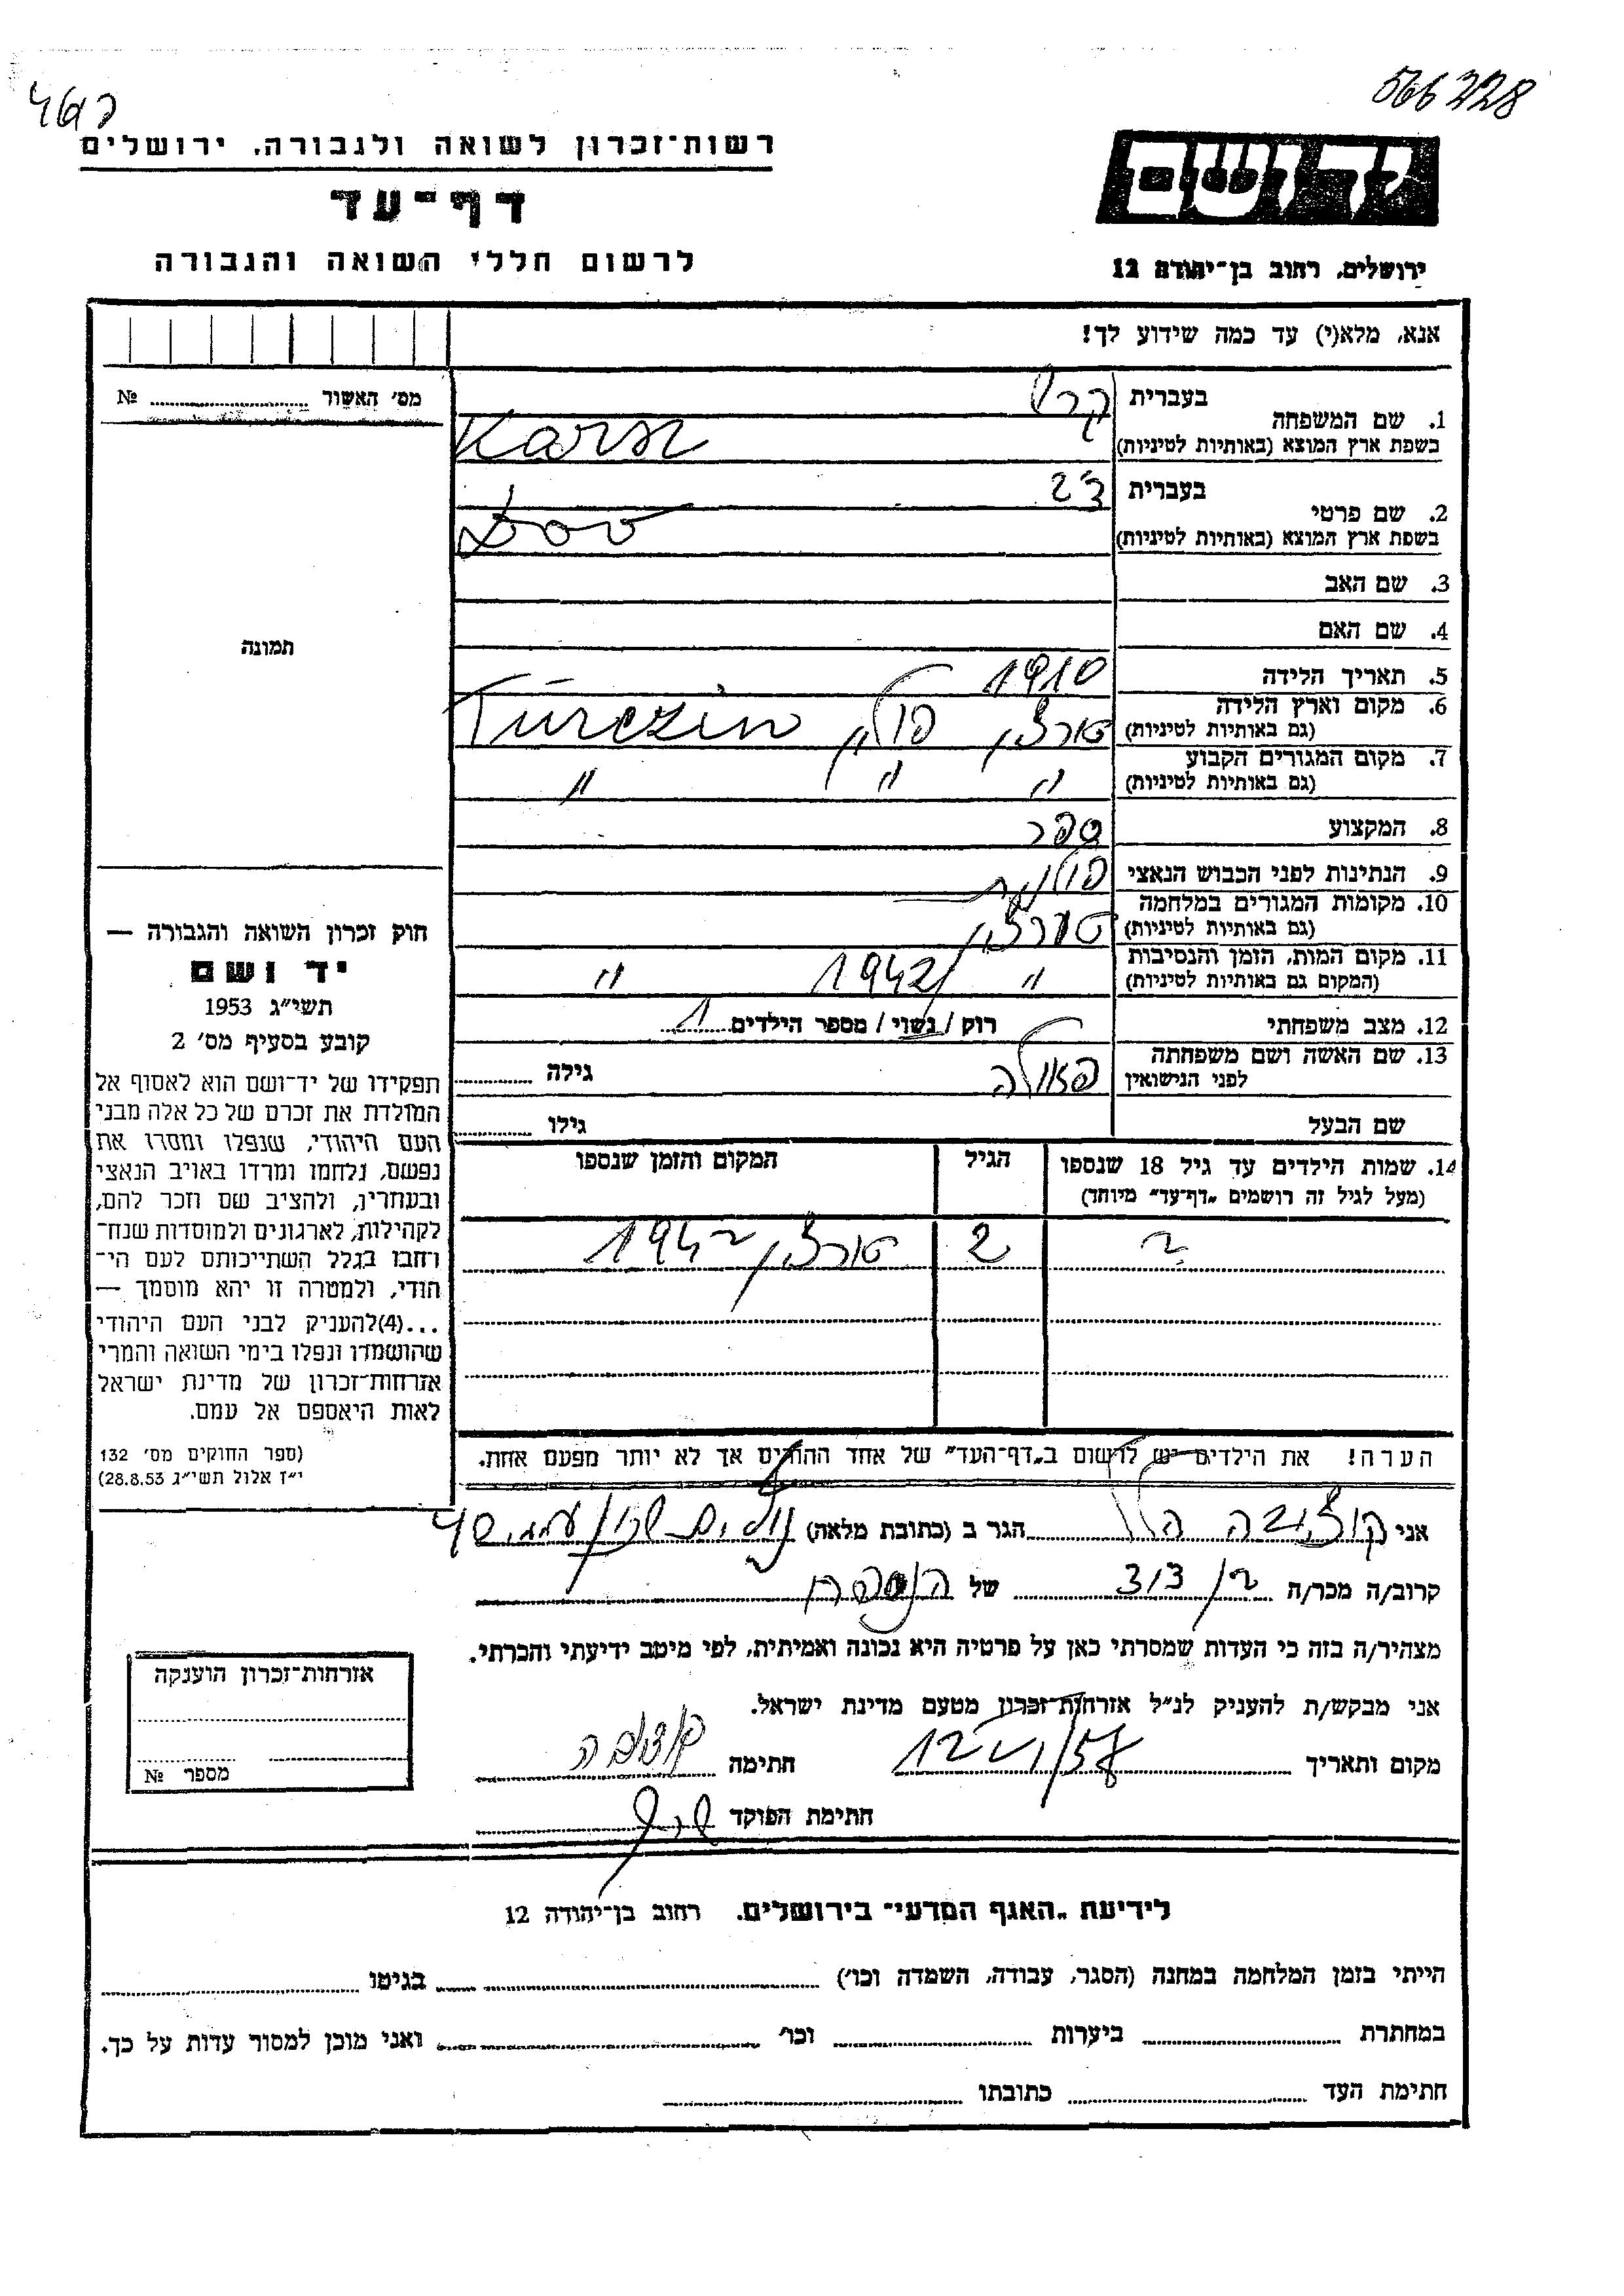 566228
רשות־זכרון לשואה ולגבורה, ירושלים
דף־עד
לרשום חללי השואה והגבורה
ידושם
ירושלים, רחוב בן־יהודה 12
אנא, מלא(י) עד כמה שידוע לך!
מס׳ האשור № 
1. שם המשפחה
בעברית
בשפת ארץ המוצא (באותיות לטיניות)
2. שם פרטי
בעברית דב
בשפת ארץ המוצא (באותיות לטיניות) Dov
3. שם האב
4. שם האם
5. תאריך הלידה 1910
6. מקום וארץ הלידה
(גם באותיות לטיניות) טורצין פולין Turczin
7. מקום המגורים הקבוע
(גם באותיות לטיניות) " " "
8. המקצוע ספר
9. הנתינות לפני הכבוש הנאצי פולנית
10. מקומות המגורים במלחמה
(גם באותיות לטיניות) טורצין
11. מקום המות, הזמן והנסיבות
(המקום גם באותיות לטיניות) " 1942 "
12. מצב משפחתי רוק / נשוי / מספר הילדים 1
13. שם האשה ושם משפחתה
לפני הנישואין פאולה גילה
שם הבעל גילו
14. שמות הילדים עד גיל 18 שנספו
(מעל לגיל זה רושמים „דף־עד" מיוחד)
הגיל
המקום והזמן שנספו
? 2 טורצין 1942
הערה! את הילדים יש לרשום ב„דף־העד" של אחד ההורים אך לא יותר מפעם אחת.
תמונה
חוק זכרון השואה והגבורה —
יד ושם
תשי״ג 1953
קובע בסעיף מס׳ 2
תפקידו של יד־ושם הוא לאסוף אל
המולדת את זכרם של כל אלה מבני
העם היהודי, שנפלו ומסרו את
נפשם, נלחמו ומרדו באויב הנאצי
ובעוזריו, ולהציב שם וזכר להם,
לקהילות, לארגונים ולמוסדות שנח־
רחבו בגלל השתייכותם לעם הי־
הודי, ולמטרה זו יהא מוסמך —
...(4)להעניק לבני העם היהודי
שהושמדו ונפלו בימי השואה והמרי
אזרחות־זכרון של מדינת ישראל
לאות היאספם אל עמם.
(ספר החוקים מס׳ 132
י״ז אלול תשי״ג 28.8.53)
אני הגר ב (כתובת מלאה)
קרוב/ה מכר/ה בן דוד של הנספה
מצהיר/ה בזה כי העדות שמסרתי כאן על פרטיה היא נכונה ואמיתית, לפי מיטב ידיעתי והכרתי.
אני מבקש/ת להעניק לנ״ל אזרחות־זכרון מטעם מדינת ישראל.
מקום ותאריך חתימה
חתימת הפוקד
אזרחות־זכרון הוענקה
מספר №
לידיעת „האגף המדעי" בירושלים. רחוב בן־יהודה 12
הייתי בזמן המלחמה במחנה (הסגר, עבודה, השמדה וכו׳) בגיטו
במחתרת ביערות וכו׳ ואני מוכן למסור עדות על כך.
חתימת העד כתובתו